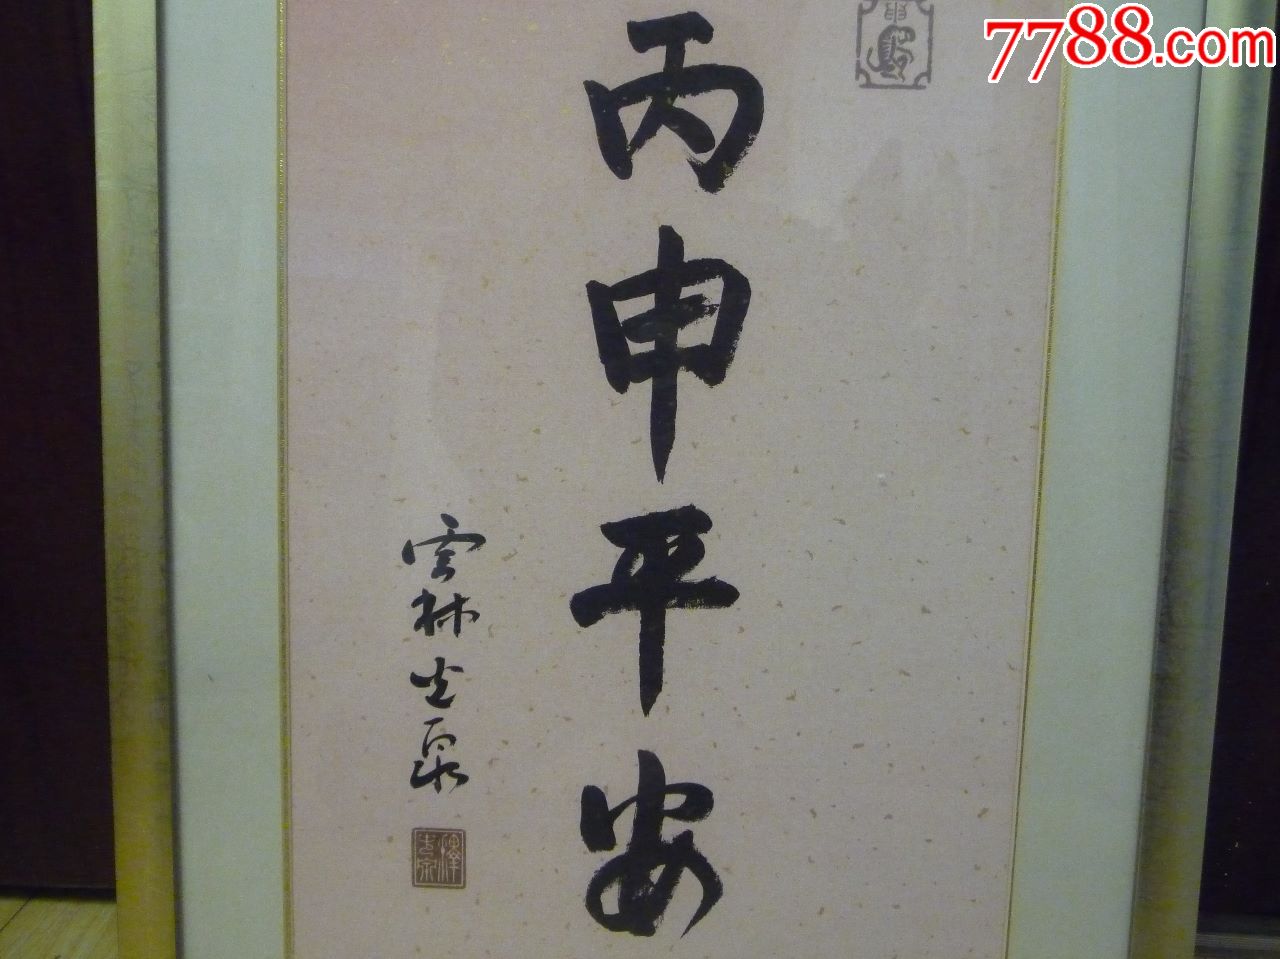 7788.com
丙申平安
雲林光泉